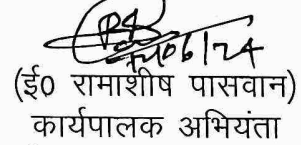 (ई0 रामाशीष पासवान)
कार्यपालक अभियंता